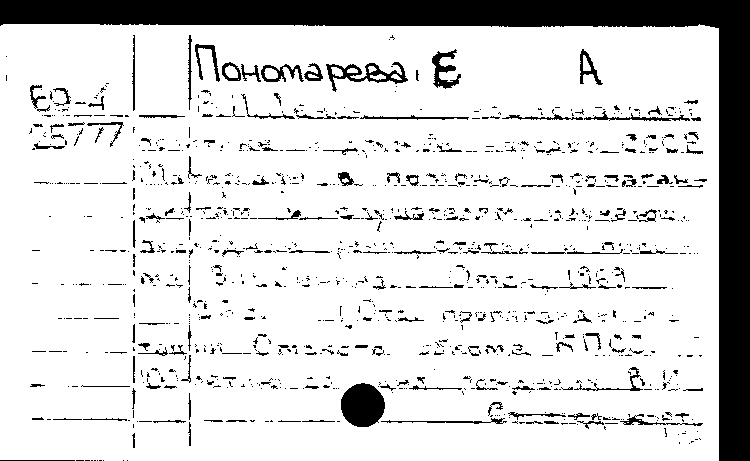 Пономарева, Е А
69-4
25777
В.И. Ленин о национальной
политике и дружбе народов СССР
Материалы в помощь пропаган-
дистам и слушателям, изучающ.
произведения, речи, статьи и пись-
ма В.И. Ленина. Омск, 1969
с. (Отд. пропаганды и
тации Омского обкома КПСС.
100-летию со дня рождения В.И.